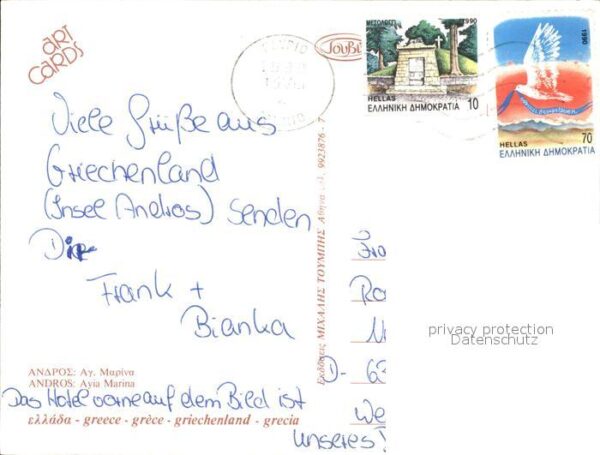 art
cards
ΓΑΥΡΙΟ
ΤΟUΒΙ
ΜΕΣΟΛΟΓΓΙ 1990
HELLAS 10
ΕΛΛΗΝΙΚΗ ΔΗΜΟΚΡΑΤΙΑ
1990
HELLAS 70
ΕΛΛΗΝΙΚΗ ΔΗΜΟΚΡΑΤΙΑ
Viele Grüße aus
Griechenland
(Insel Andros) senden
Dir
Frank +
Bianka
ΑΝΔΡΟΣ: Αγ. Μαρίνα
ANDROS: Ayia Marina
Das Hotel vorne auf dem Bild ist
unseres!
ελλάδα - greece - grèce - griechenland - grecia
Εκδόσεις ΜΙΧΑΛΗΣ ΤΟΥΜΠΗΣ Αθήνα τηλ. 9923876 - 7
D- 63
We
privacy protection
Datenschutz